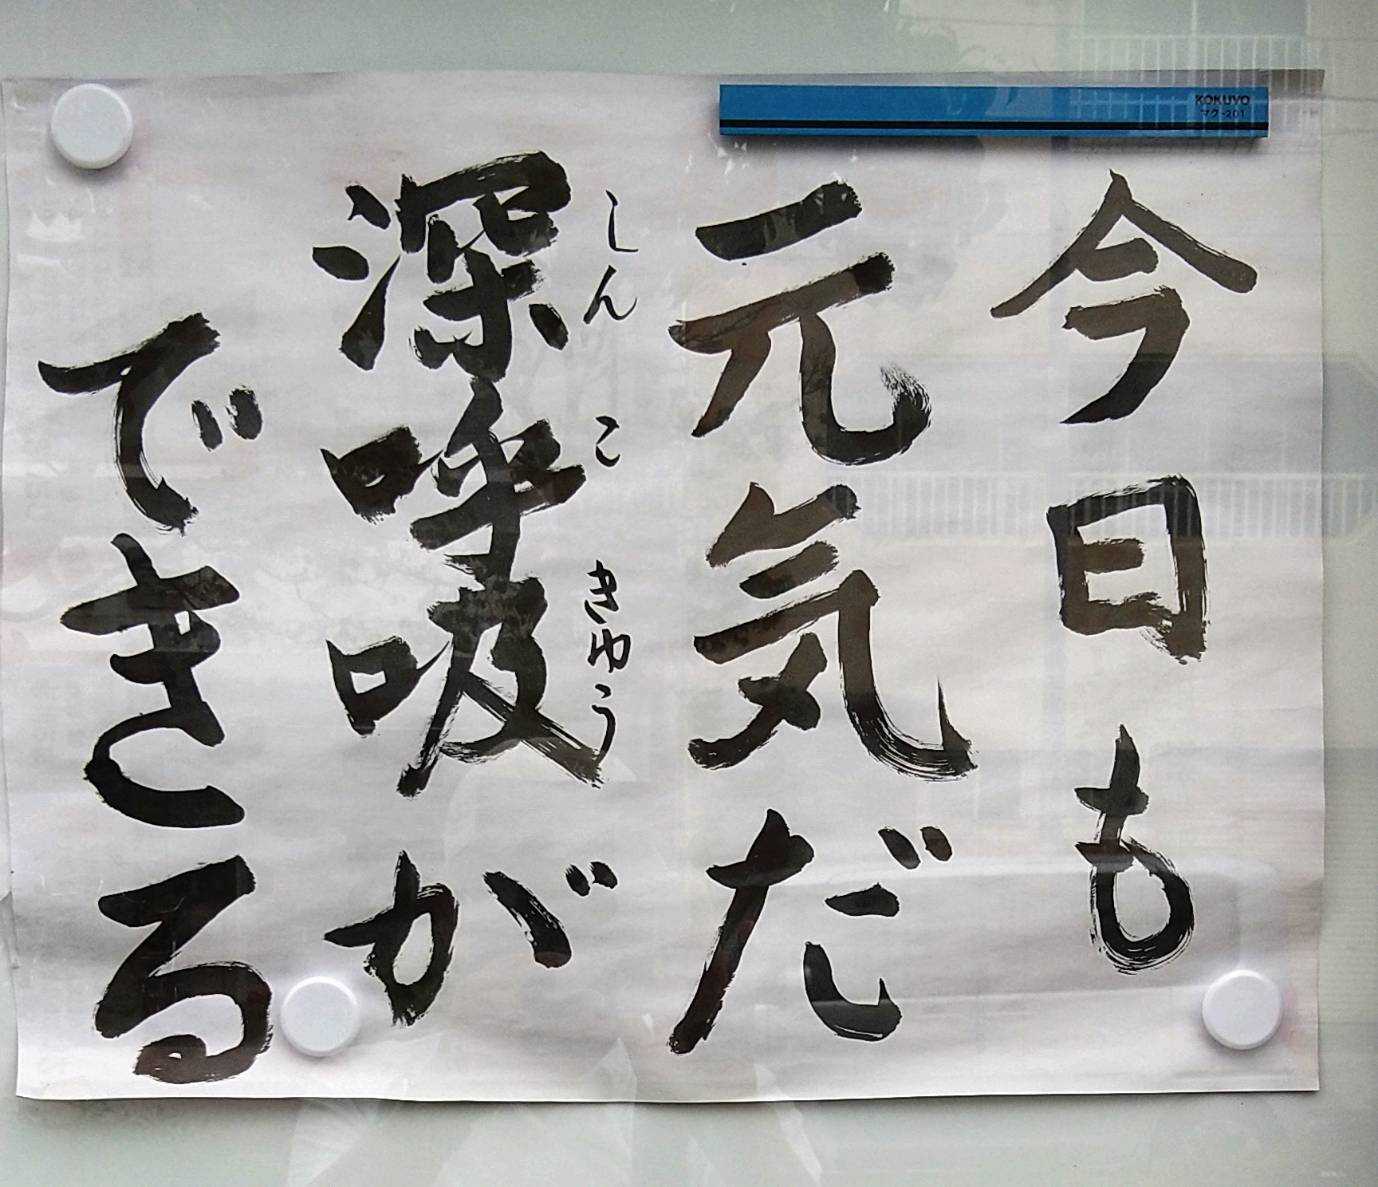 今日も
元気だ
しんこきゅう
深呼吸が
できる
KOKUYO
マク-201